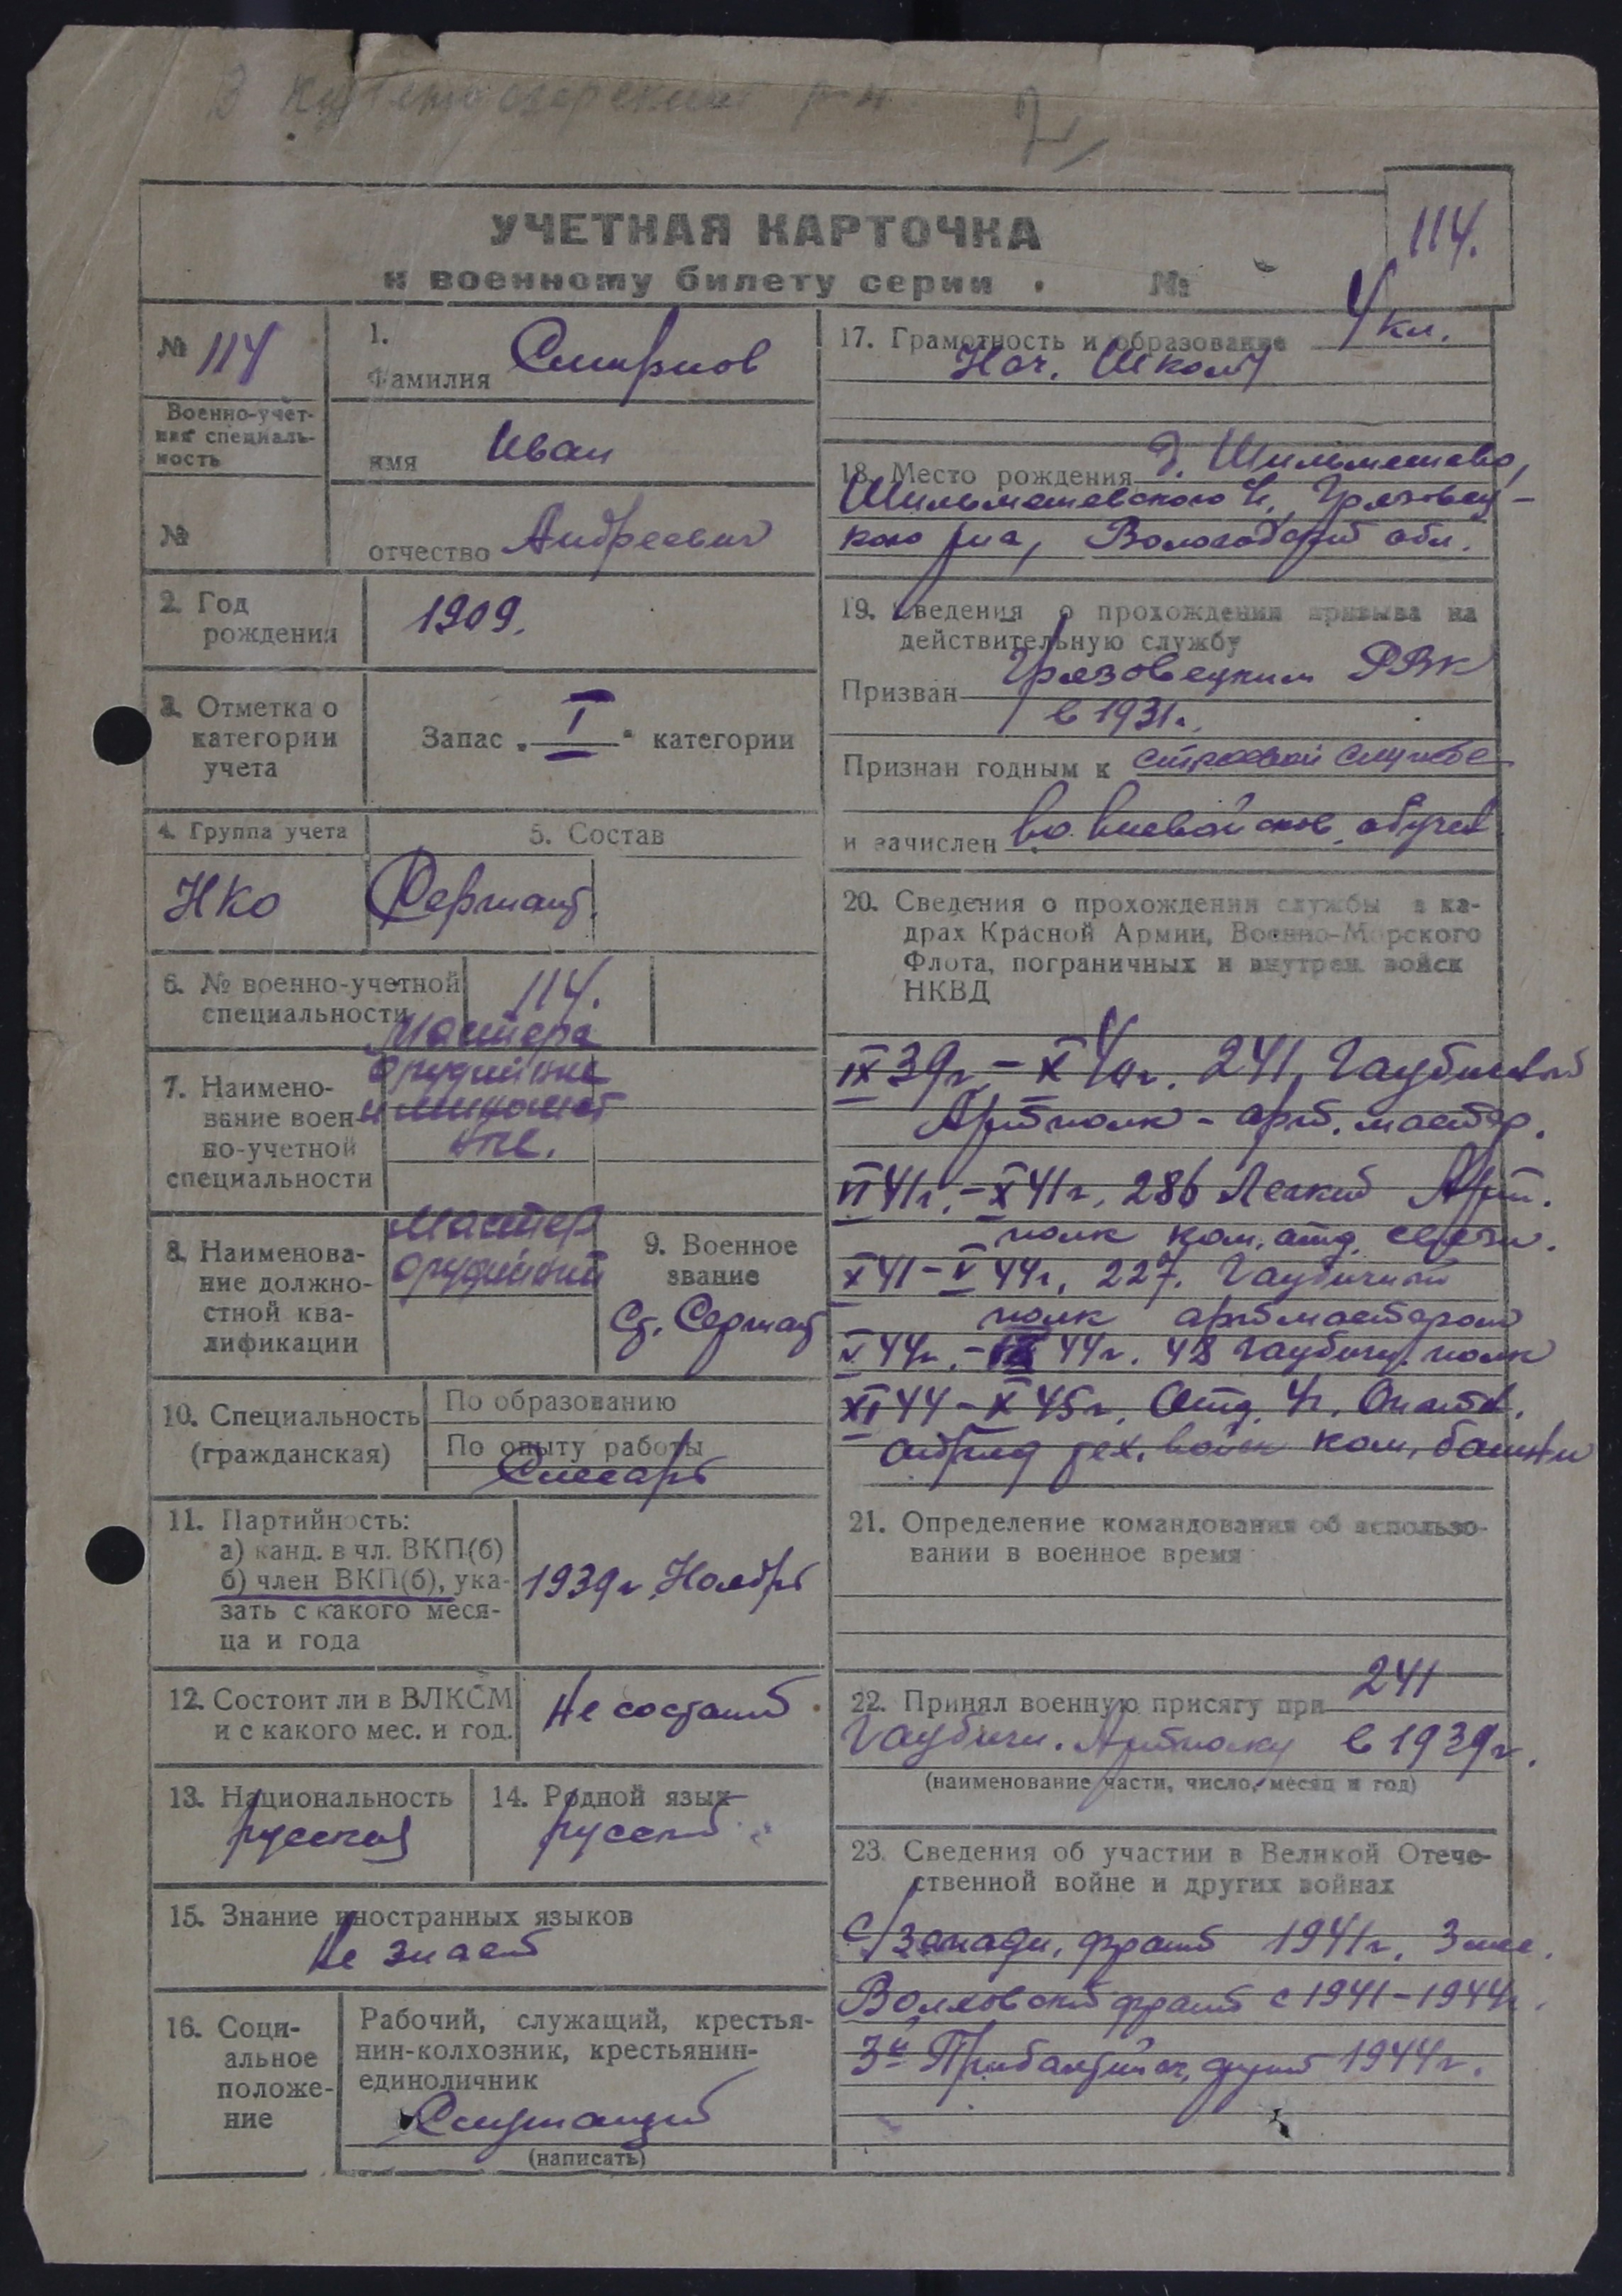 В р-н
114.
УЧЕТНАЯ КАРТОЧКА
к военному билету серии . №
№ 114
Военно-учет-
ная специаль-
ность
№
1.
Фамилия Смирнов
имя Иван
отчество Андреевич
2. Год
рождения
1909.
3. Отметка о
категории
учета
Запас „ I “ категории
4. Группа учета
5. Состав
НКО
Сержант.
6. № военно-учетной
специальности
114.
7. Наимено-
вание воен-
но-учетной
специальности
Мастера
орудийные
и миномет
ные.
8. Наименова-
ние должно-
стной ква-
лификации
Мастер
орудийный
9. Военное
звание
Ст. Сержант
10. Специальность
(гражданская)
По образованию
По опыту работы
Слесарь
11. Партийность:
а) канд. в чл. ВКП(б)
б) член ВКП(б), ука-
зать с какого меся-
ца и года
1939г Ноябрь
12. Состоит ли в ВЛКСМ
и с какого мес. и год.
Не состоит
13. Национальность
русский
14. Родной язык
русский
15. Знание иностранных языков
Не знает
16. Соци-
альное
положе-
ние
Рабочий, служащий, крестья-
нин-колхозник, крестьянин-
единоличник
Служащий
(написать)
17. Грамотность и образование 4 кл.
Нач. Школы
18. Место рождения д.
Грязовец-
кого р-на, Вологодской обл.
19. Сведения о прохождении призыва на
действительную службу
Призван Грязовецким РВК
в 1931г.
Признан годным к строевой службе
и зачислен во вневойсков. обучен
20. Сведения о прохождении службы в ка-
драх Красной Армии, Военно-Морского
Флота, пограничных и внутрен. войск
НКВД
IX 39г. – X 40г. 241, Гаубичный
Артполк - арт. мастер.
VI 41г. – X 41г. 286 Легкий Арт.
полк ком. отд. связи.
X 41 – V 44г. 227. Гаубичный
полк артмастером
V 44г. – 44г. 48 Гаубичн. полк
XI 44 – X 45г. Отд. 4
отряд тех. войск ком.
21. Определение командования об использо-
вании в военное время
22. Принял военную присягу при 241
Гаубичн. Артполку в 1939г.
(наименование части, число, месяц и год)
23. Сведения об участии в Великой Отече-
ственной войне и других войнах
С/Западн. фронт 1941г. 3 мес.
Волховский фронт с 1941-1944г.
3й Прибалтийск. фронт 1944г.